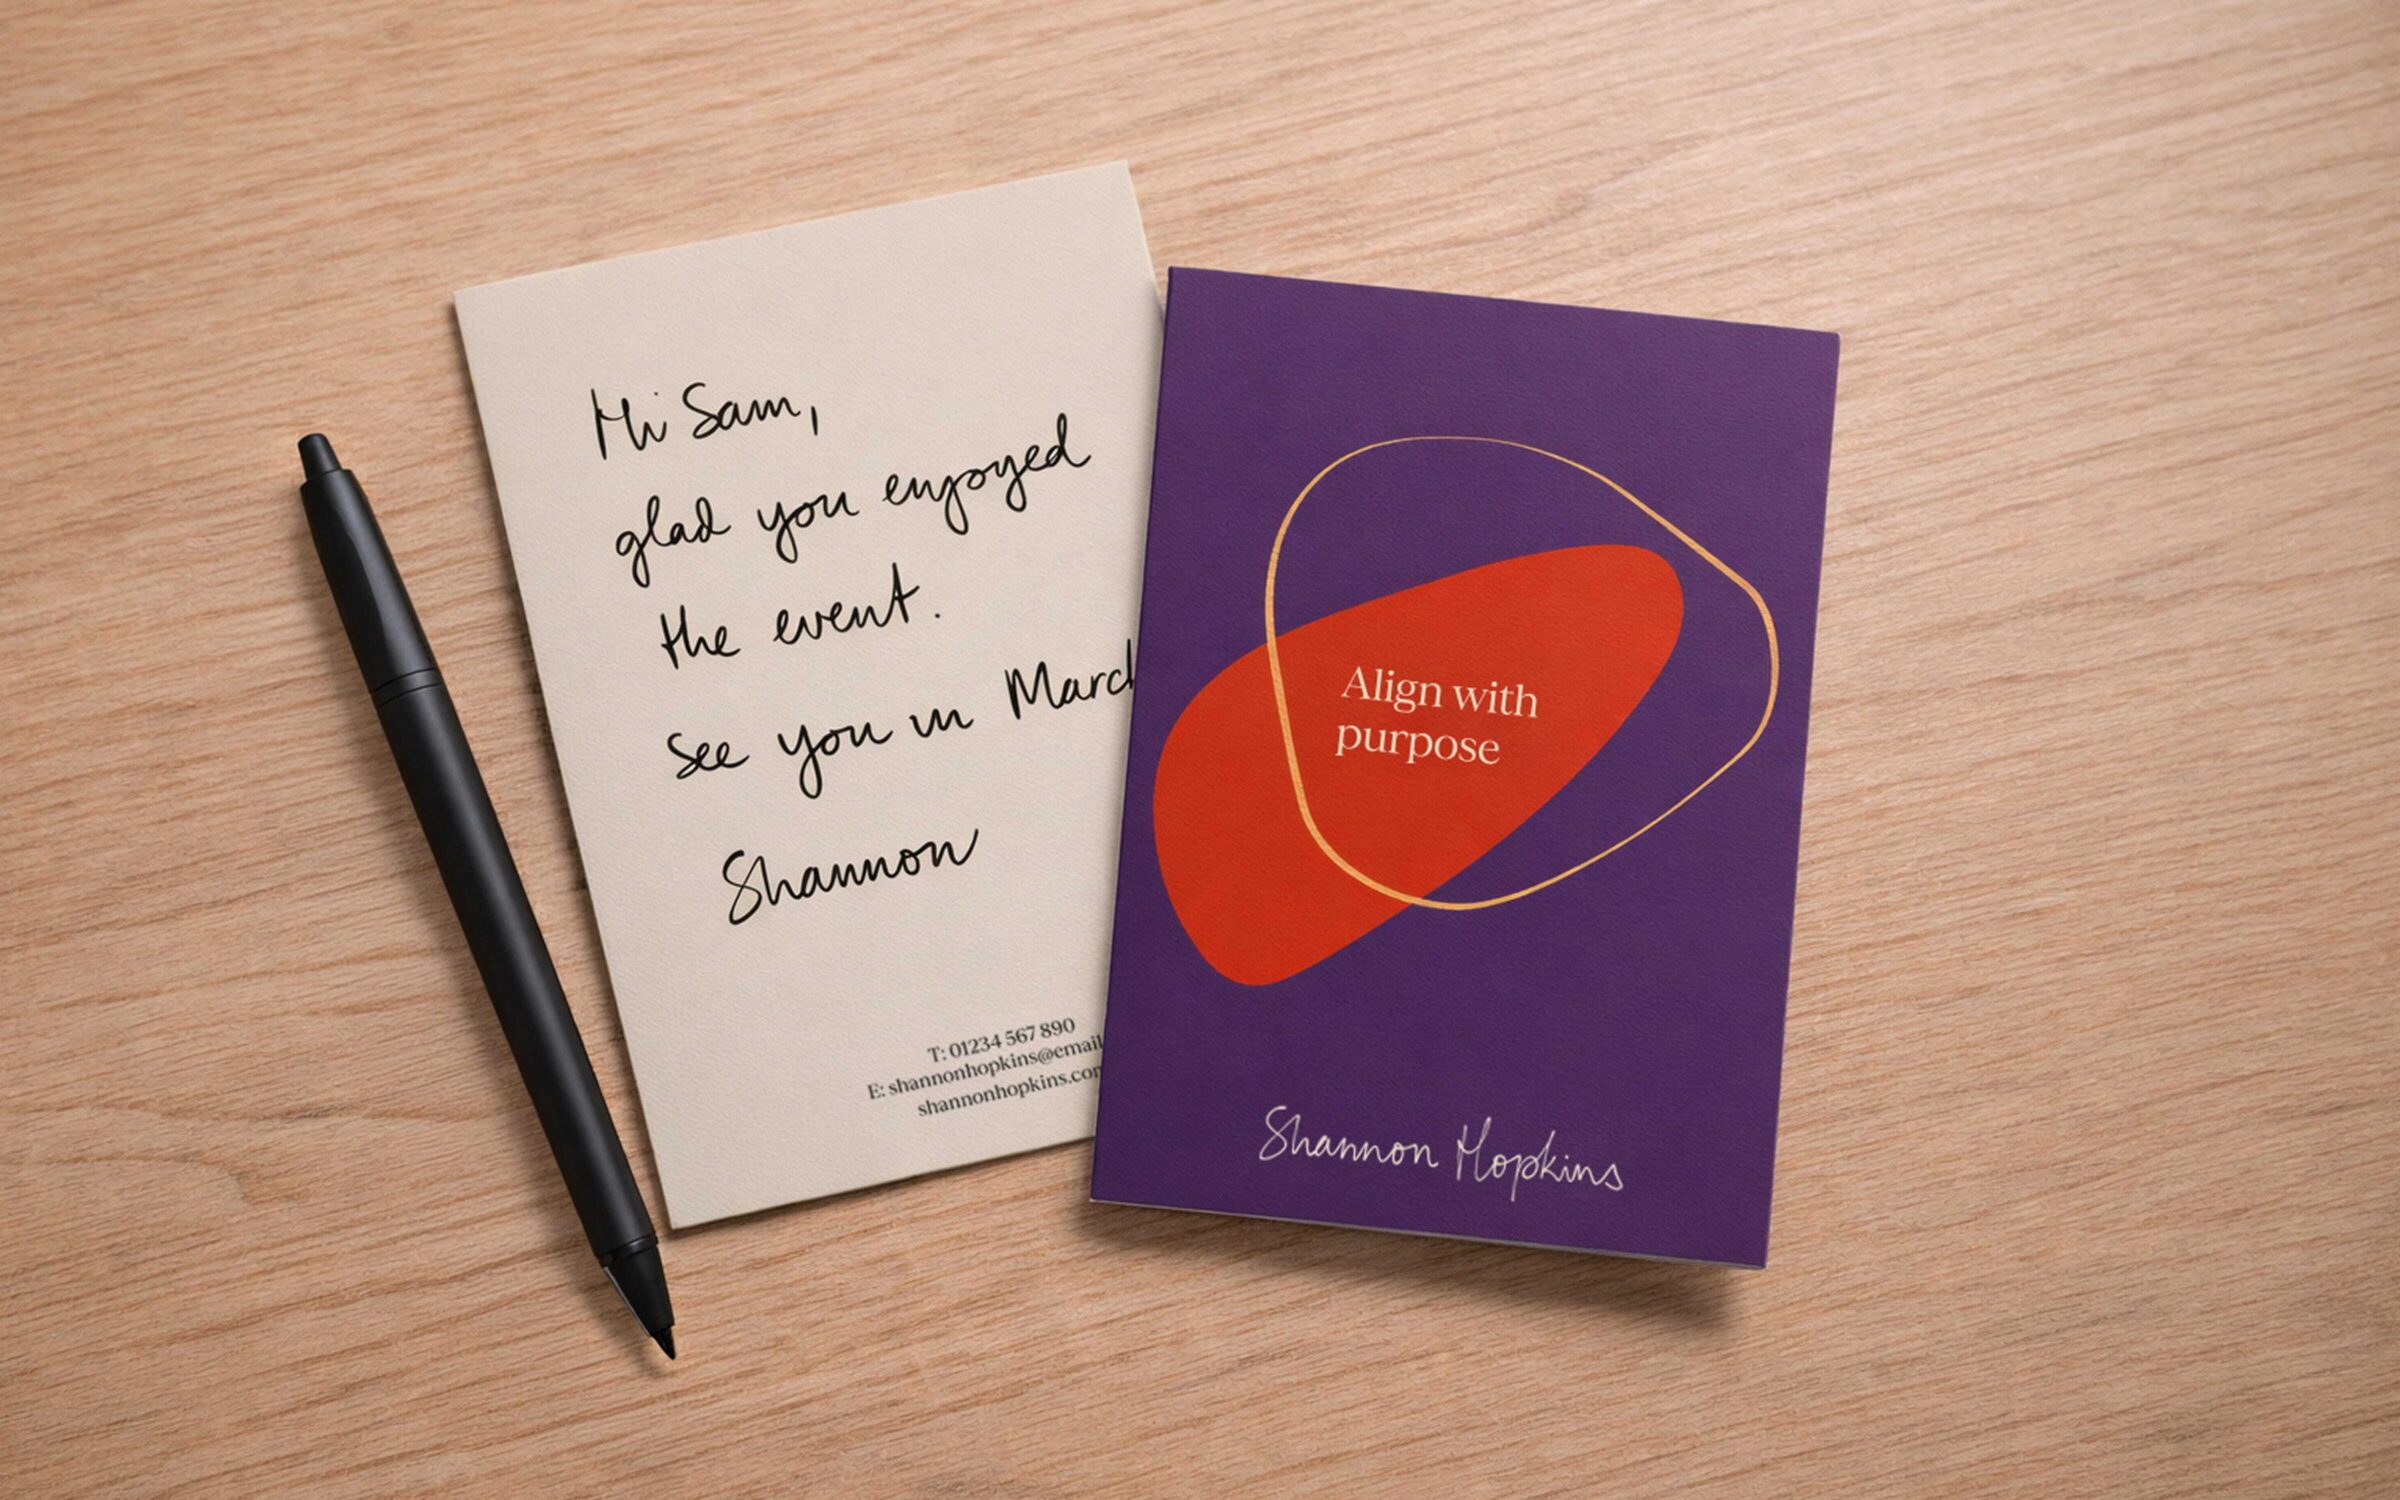 Hi Sam,
glad you enjoyed
the event.
See you in March
Shannon
T: 01234 567 890
E: shannonhopkins@email
shannonhopkins.com
Align with
purpose
Shannon Hopkins